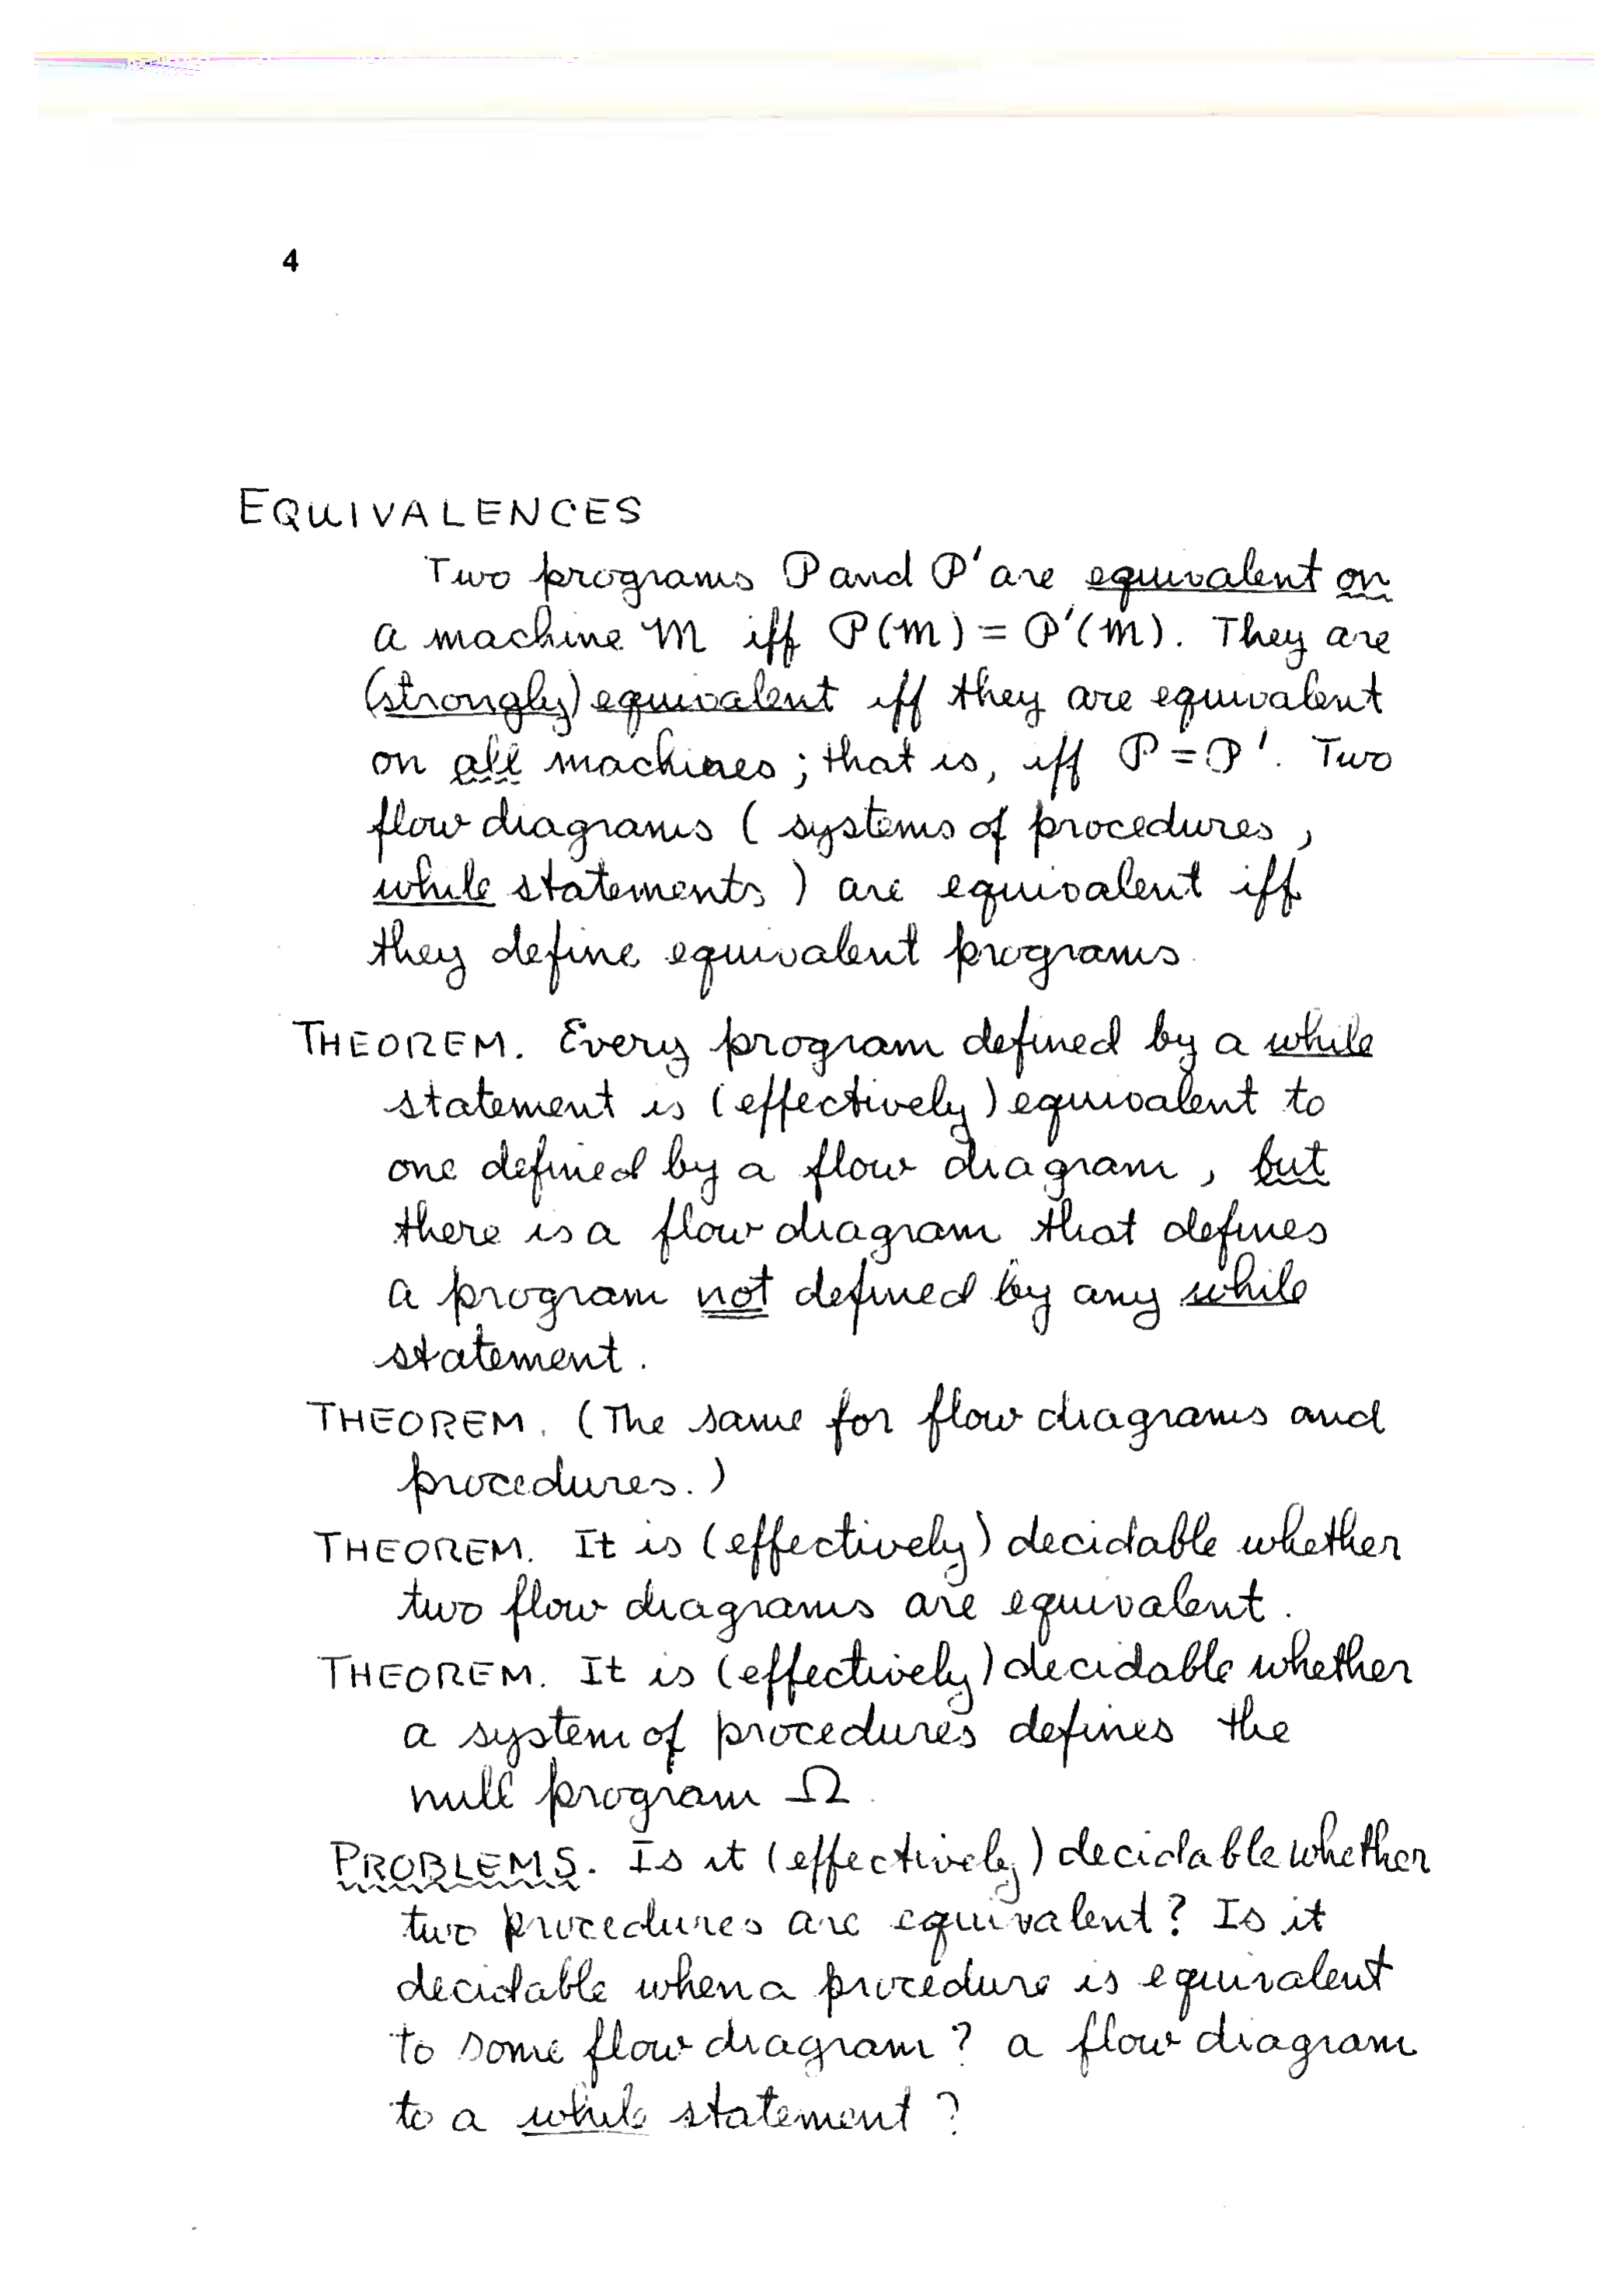 4
EQUIVALENCES
Two programs P and P' are equivalent on
a machine M iff P(M) = P'(M). They are
(strongly) equivalent iff they are equivalent
on all machines; that is, iff P = P'. Two
flow diagrams (systems of procedures,
while statements) are equivalent iff
they define equivalent programs.
THEOREM. Every program defined by a while
statement is (effectively) equivalent to
one defined by a flow diagram, but
there is a flow diagram that defines
a program not defined by any while
statement.
THEOREM. (The same for flow diagrams and
procedures.)
THEOREM. It is (effectively) decidable whether
two flow diagrams are equivalent.
THEOREM. It is (effectively) decidable whether
a system of procedures defines the
null program Ω.
PROBLEMS. Is it (effectively) decidable whether
two procedures are equivalent? Is it
decidable when a procedure is equivalent
to some flow diagram? a flow diagram
to a while statement?